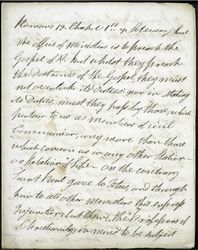 Romans 13. Chapter 1st
The office of Ministers is to preach the
Gospel of but whilst they preach
the doctrines of the Gospel, they must
not overlook its Duties; nor in stating
its Duties, must they pass by those, which
pertain to us as members of civil
Communities, any more than those
which concern us in any other station
or relation of life. On the contrary,
Saint Paul gave to Titus, and through
him to all other Ministers this express
injunction,
Christianity, in mind to be subject